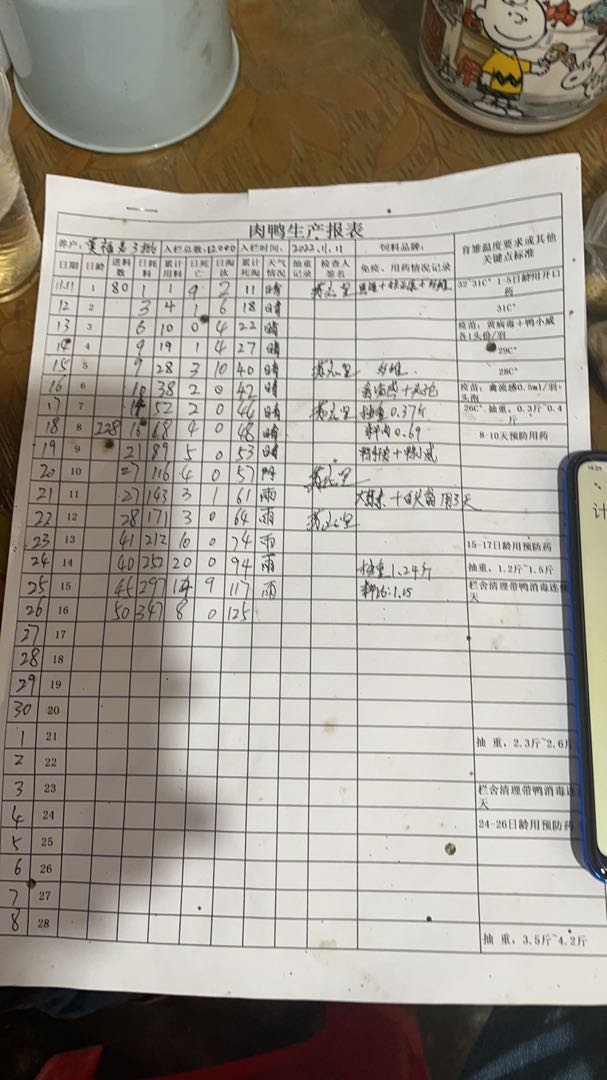 肉鸭生产报表
养户: 3批 入栏总数:12000 入栏时间: 2022.11.11 饲料品牌: 育雏温度要求或其他关键点标准
日期 日龄 进料数 日耗料 累计用料 日死亡 日淘汰 累计死淘 天气情况 抽重记录 检查人签名 免疫、用药情况记录
11.11 1 80 1 1 9 2 11 晴 32-31C° 1-5日龄用开口药
12 2 3 4 1 6 18 晴 31C°
13 3 6 10 0 4 22 晴 疫苗:黄病毒+鸭小威各1头份/羽
14 4 9 19 1 4 27 晴 29C°
15 5 9 28 3 10 40 晴 28C°
16 6 10 38 2 0 42 晴 疫苗:禽流感0.5ml/羽+头孢
17 7 14 52 2 0 44 晴 抽重0.37斤 26C° 抽重,0.3斤~0.4斤
18 8 228 16 68 4 0 48 晴 料肉0.69 8-10天预防用药
19 9 21 89 5 0 53 晴
20 10 27 116 4 0 57
21 11 27 143 3 1 61 雨 用3天
22 12 28 171 3 0 64 雨
23 13 41 212 10 0 74 雨 15-17日龄用预防药
24 14 40 252 20 0 94 雨 抽重1.24斤 抽重,1.2斤~1.5斤
25 15 45 297 14 9 117 雨 料比:1.15 栏舍清理带鸭消毒连续 天
26 16 50 347 8 0 125
27 17
28 18
29 19
30 20
1 21 抽 重,2.3斤~2.6斤
2 22
3 23 栏舍清理带鸭消毒连 天
4 24 24-26日龄用预防药
5 25
6 26
7 27
8 28 抽 重,3.5斤~4.2斤